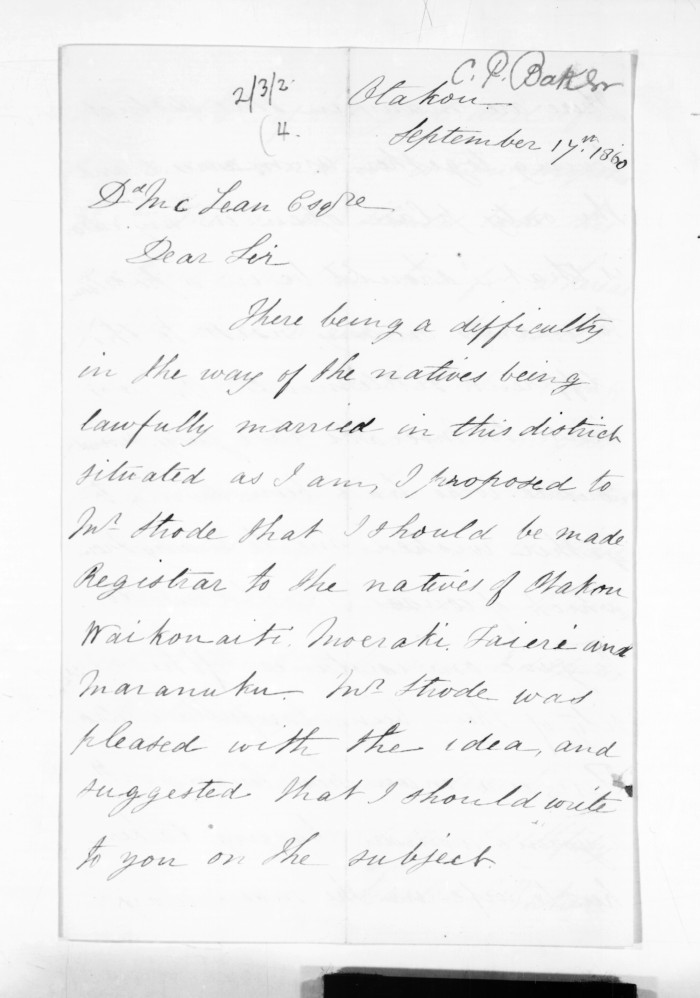 C. P. Baker
2/3/2
4.
Otakou
September 17th. 1860
Dd. McLean Esqre
Dear Sir
There being a difficulty
in the way of the natives being
lawfully married in this district
situated as I am, I proposed to
Mr Strode that I should be made
Registrar to the natives of Otakou
Waikouaiti. Moeraki. Taieri and
Maranuku. Mr Strode was
pleased with the idea, and
suggested that I should write
to you on the subject.